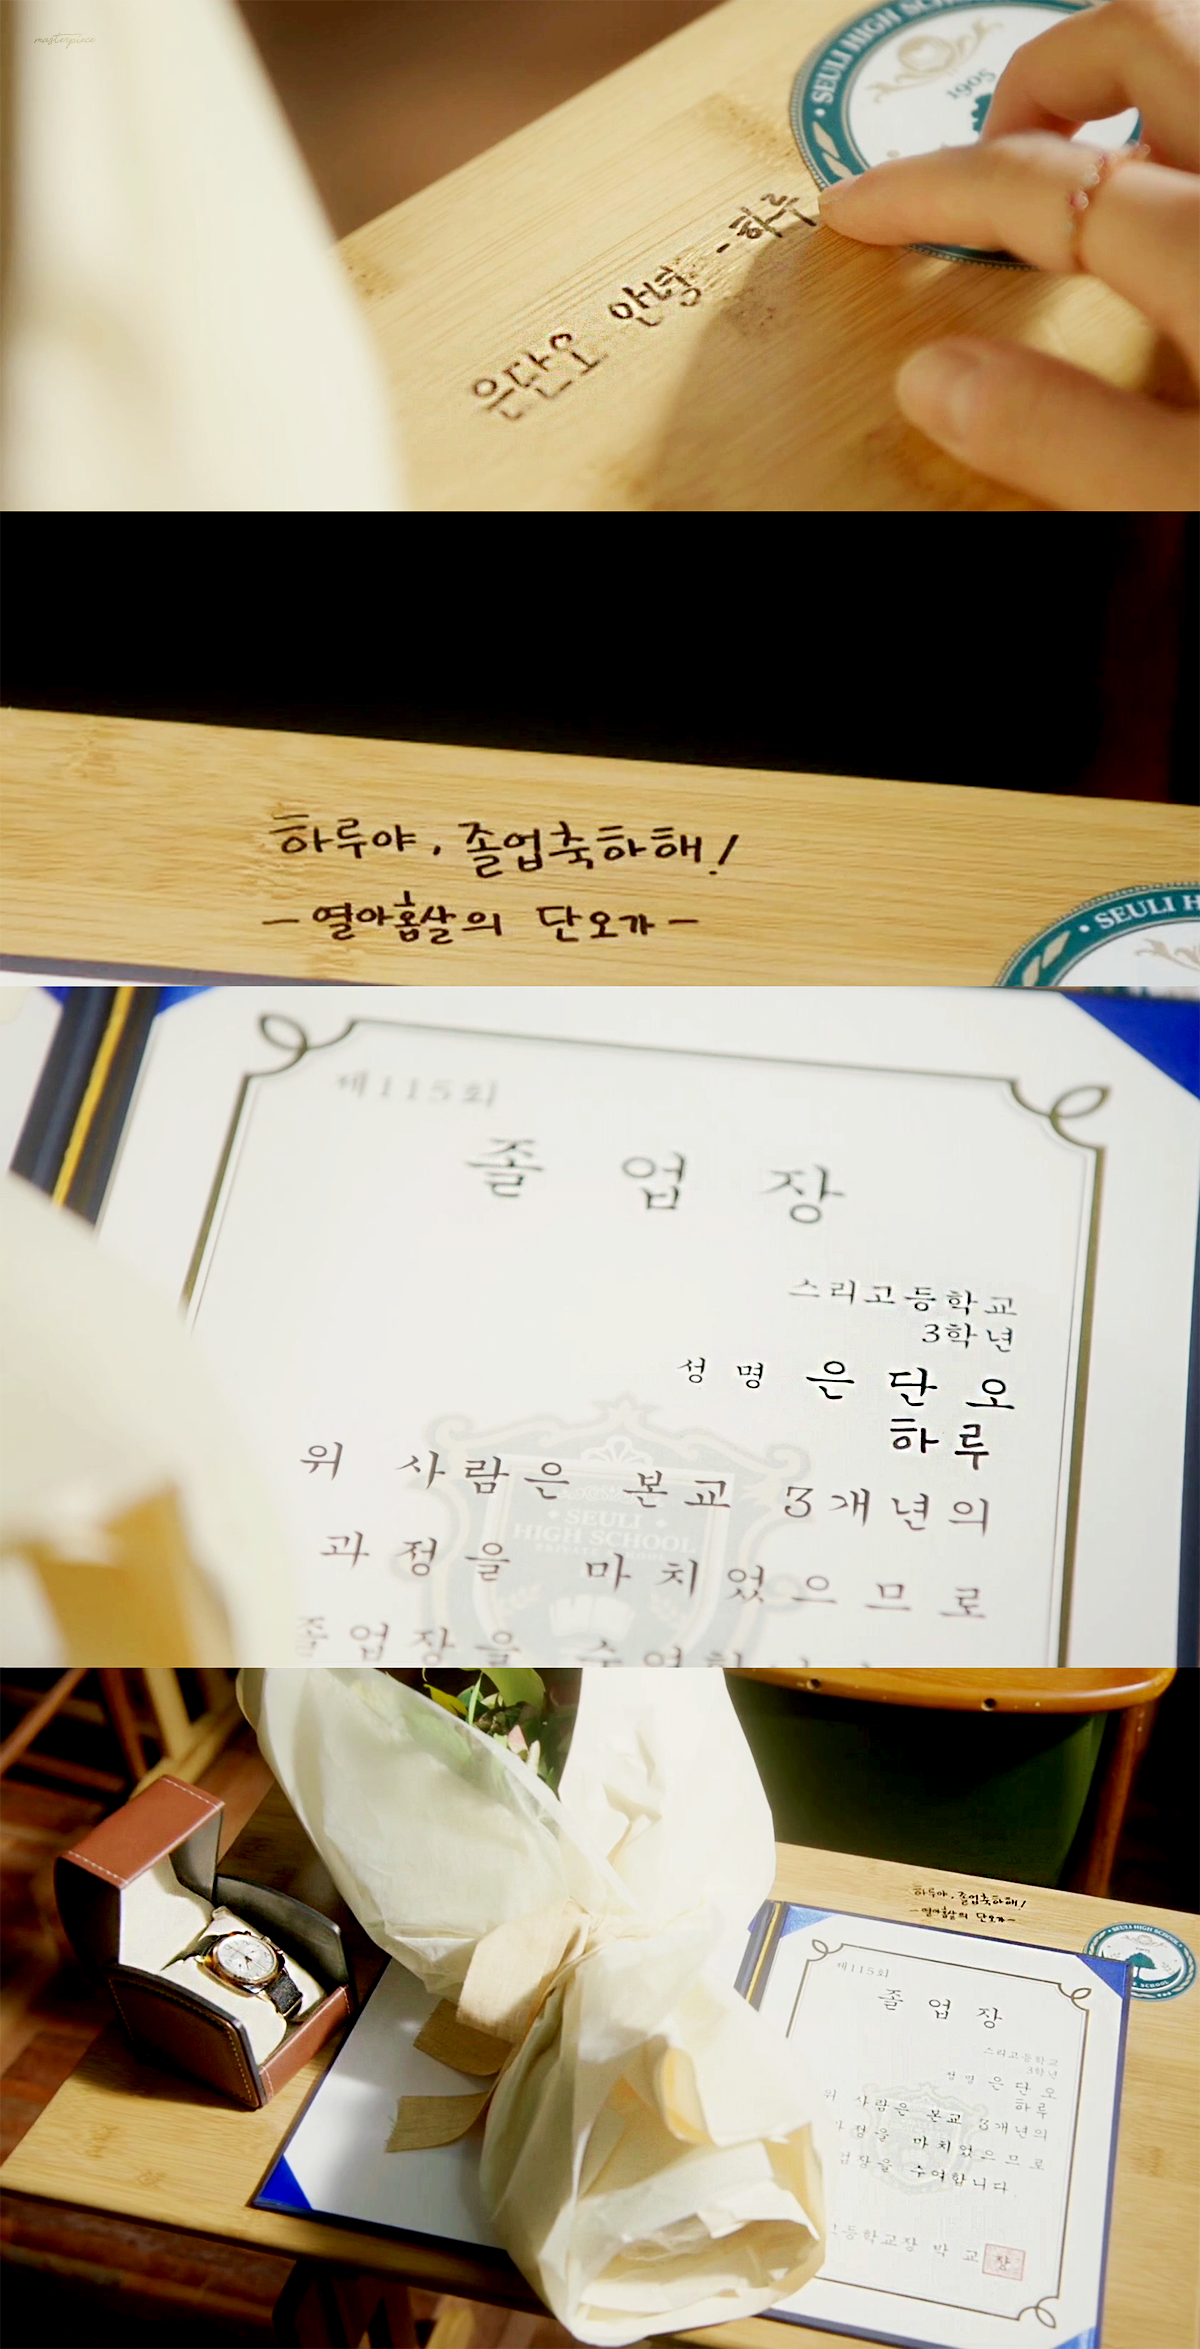 masterpiece
• SEULI HIGH SCHO
1905
은단오 안녕 - 하루
하루야, 졸업축하해!
- 열아홉살의 단오가 -
• SEULI H
제115회
졸 업 장
스리고등학교
3학년
성 명 은 단 오
하루
위 사람은 본교 3개년의
• SEULI •
HIGH SCHOOL
과정을 마치었으므로
졸업장을
하루야, 졸업축하해!
- 열아홉살의 단오가 -
• SEULI HIGH SCHOOL •
제115회
졸 업 장
스리고등학교
3학년
성 명 은 단 오
하루
위 사람은 본교 3개년의
정을 마치었으므로
업장을 수여합니다.
등학교장 박 교 장